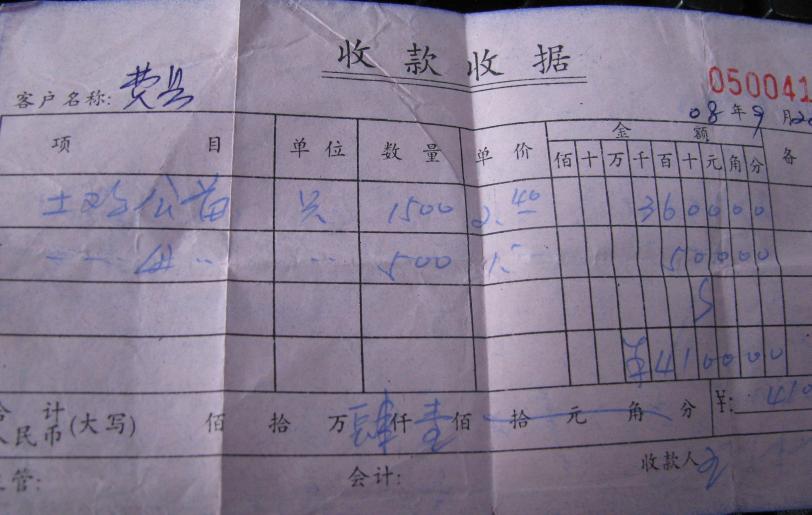 收款收据
050041
客户名称: 费县
08年9月20
项目 单位 数量 单价 金额 备
佰 十 万 千 百 十 元 角 分
土鸡公苗 只 1500 2.40 360000
500 1 50000
410000
合计
人民币(大写) 佰 拾 万 肆仟 壹佰 拾 元 角 分 ¥: 410
主管: 会计: 收款人